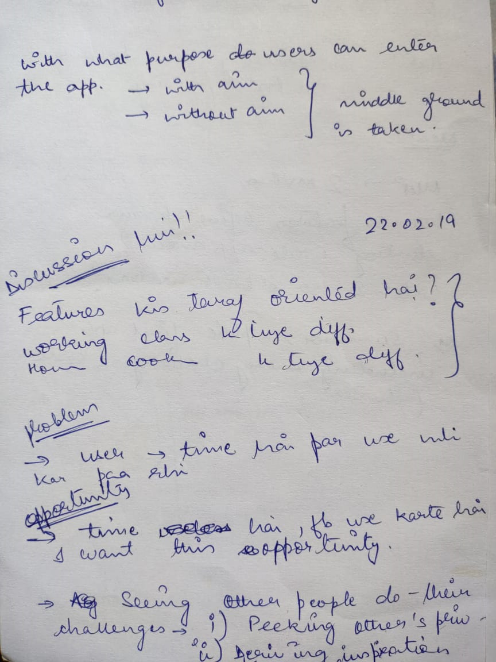 with what purpose do users can enter
the app. → with aim
→ without aim
middle ground
is taken.
22.02.19
Discussion !!
Features kis taraf oriented hai?
working class k liye diff.
Home cook k liye diff.
Problem
→ user → time hai par use nhi
kar paa rhi
opportunity
→ time hai, fb use karte hai
I want this opportunity.
→ Seeing other people do their
challenges → i) Peeking other's priv-
ii) Deriving inspiration